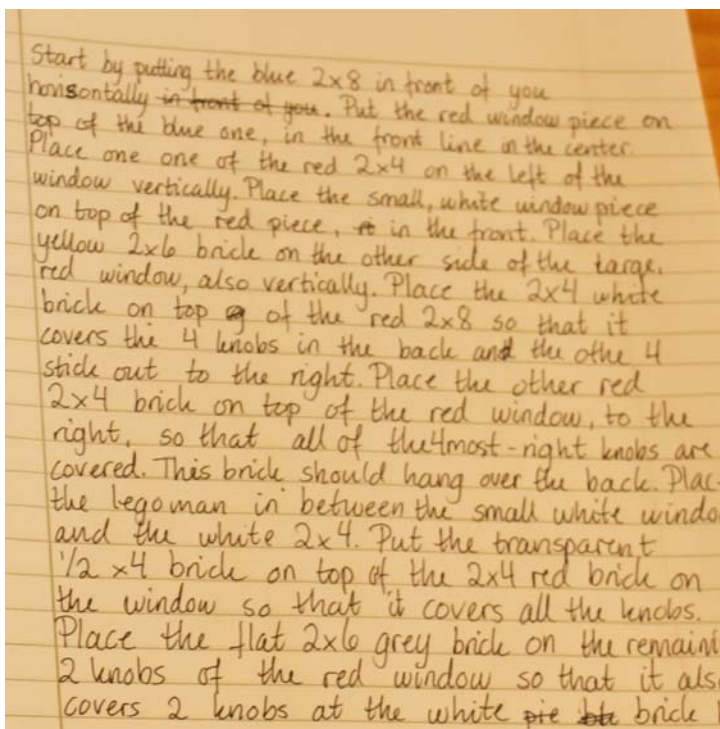 Start by putting the blue 2x8 in front of you
horisontally in front of you. Put the red window piece on
top of the blue one, in the front line in the center.
Place one one of the red 2x4 on the left of the
window vertically. Place the small, white window piece
on top of the red piece, in the front. Place the
yellow 2x6 brick on the other side of the large,
red window, also vertically. Place the 2x4 white
brick on top of the red 2x8 so that it
covers the 4 knobs in the back and the othe 4
stick out to the right. Place the other red
2x4 brick on top of the red window, to the
right, so that all of the 4 most-right knobs are
covered. This brick should hang over the back. Plac
the legoman in between the small white windo
and the white 2x4. Put the transparent
1/2 x4 brick on top of the 2x4 red brick on
the window so that it covers all the knobs.
Place the flat 2x6 grey brick on the remaini
2 knobs of the red window so that it als
covers 2 knobs at the white pie brick